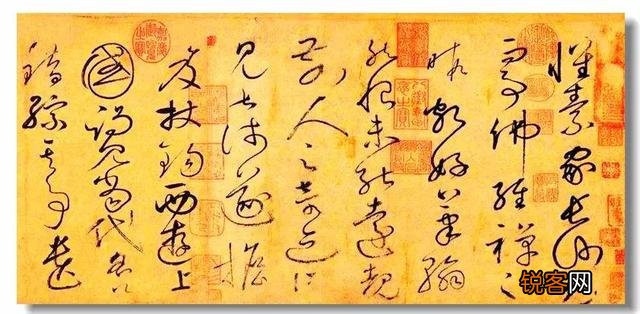 懷素家長沙幼而
事佛經禪之
暇頗好筆翰
然恨未能遠覩
前人之奇迹所
見甚淺遂擔
笈杖錫西遊上
國謁見當代名公
錯綜其事遺
锐客网